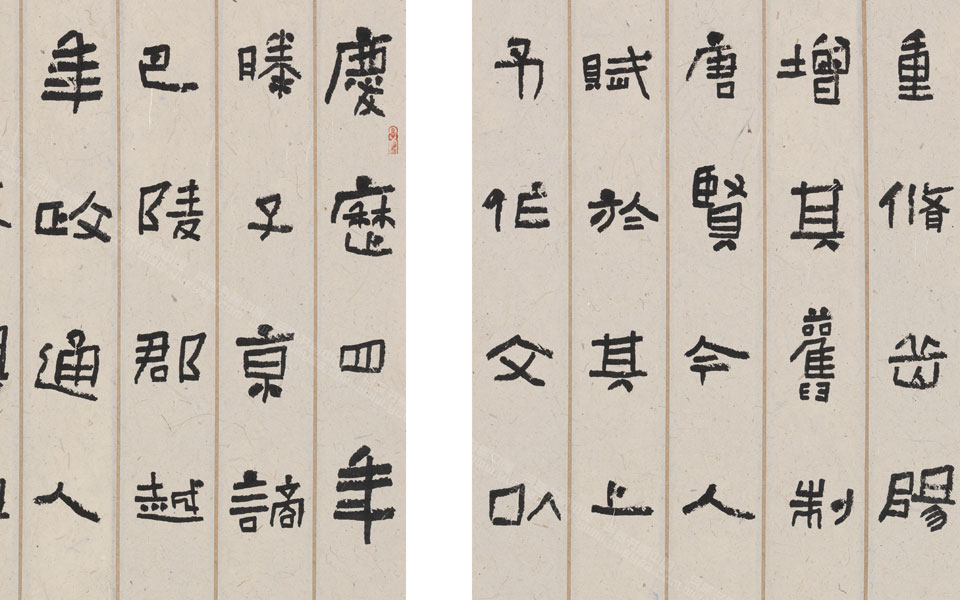 慶歷四年
滕子京謫
巴陵郡越
年政通人
重脩岳陽
增其舊制
唐賢今人
賦於其上
予作文以